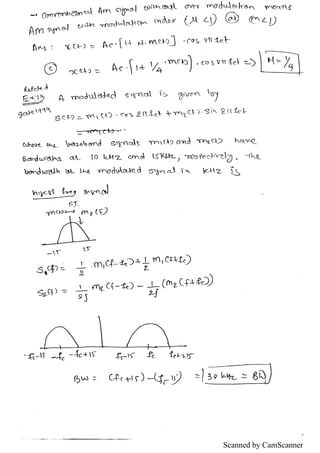 → conventional Am signal without over modulation means
Am signal with modulation index (μ<1) (or) (m<1)
Am: x(t) = Ac·[1+ μ. m(t)] · cos 2πfct
(c) x(t) = Ac·[1+ 1/4 · m(t)] · cos 2πfct ⇒ μ = 1/4
Ex:13 A modulated signal is given by
gate 1999 S(t) = m1(t)·cos 2πfct + m2(t)·sin 2πfct
where the baseband signals m1(t) and m2(t) have
Bandwidths at 10 kHz and 15 kHz, respectively. The
bandwidth at the modulated signal in kHz is
highest freq signal
F.T.
m2(t) ↔ m2(f)
-15 15
S1(f) = 1/2 · m1(f-fc) + 1/2 m1(f+fc)
S2(f) = 1/2j m2(f-fc) - 1/2j (m2(f+fc))
-fc-15 -fc -fc+15 fc-15 fc fc+15
BW = (fc+15) - (fc-15) = 30 kHz = BW
Scanned by CamScanner